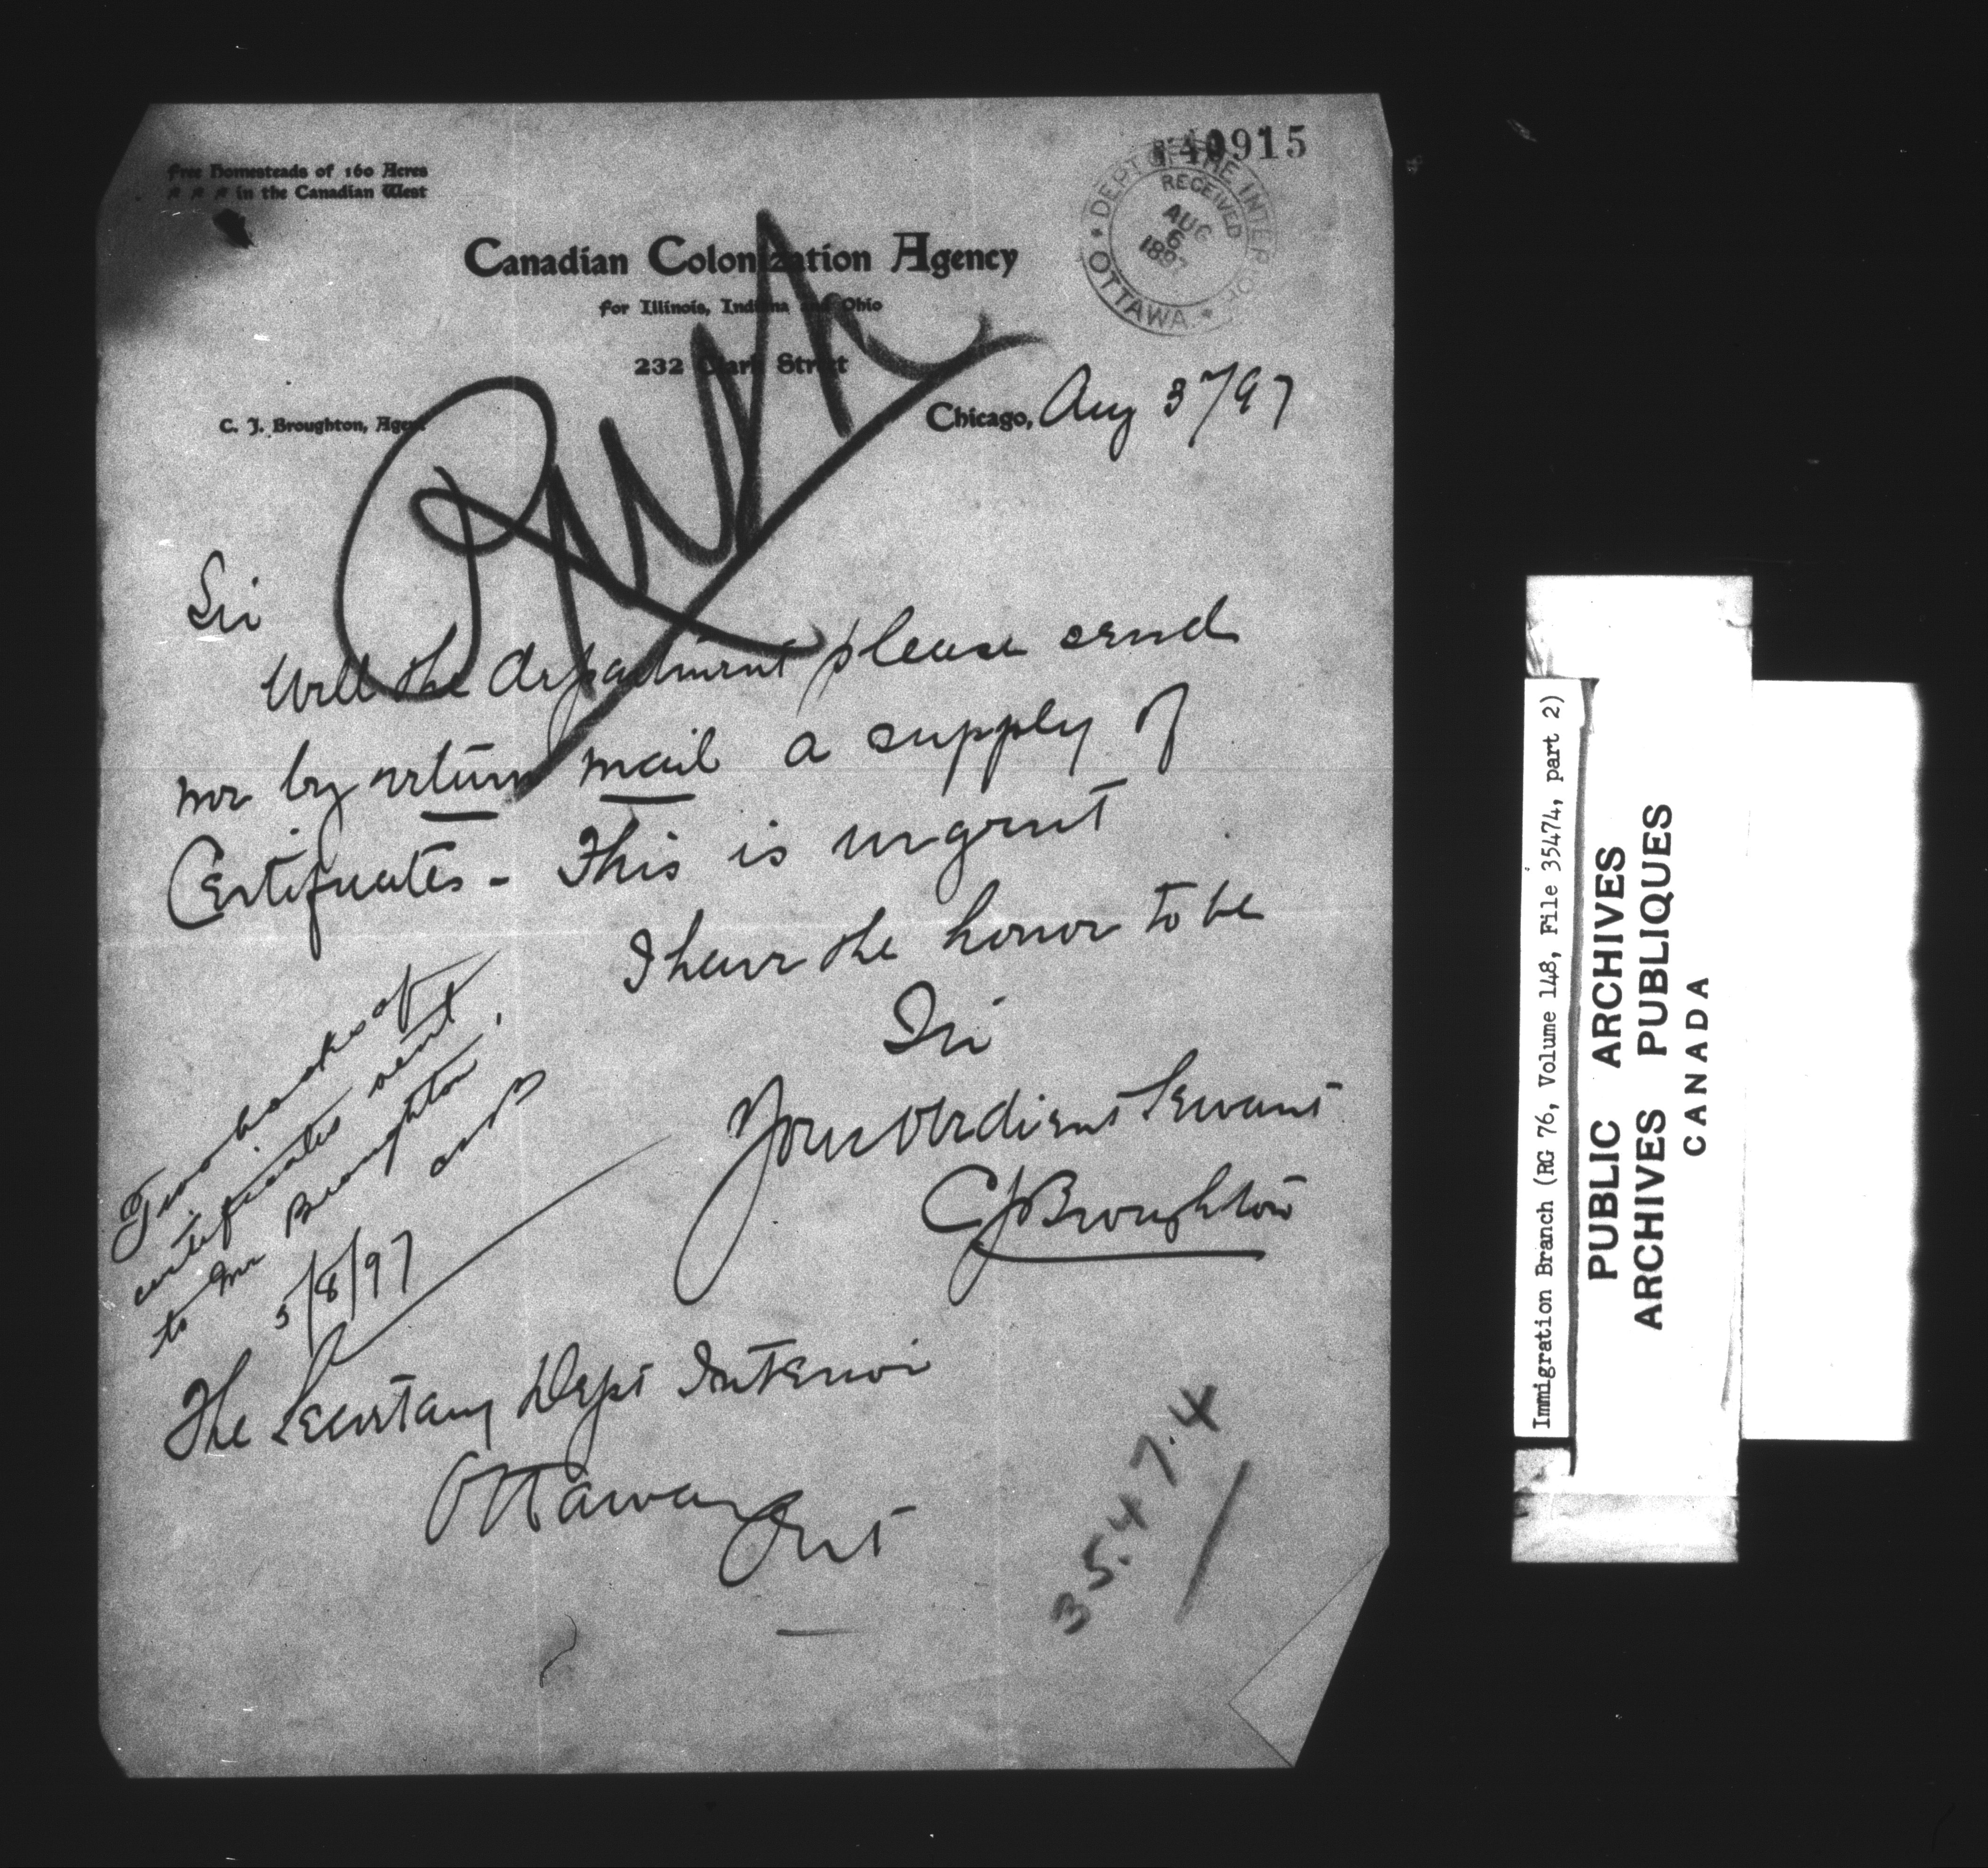 Free Homesteads of 160 Acres
in the Canadian West
40915
DEPT OF THE INTERIOR
RECEIVED
AUG
6
1897
OTTAWA
Canadian Colonization Agency
for Illinois, Indiana and Ohio
232 Clark Street
C. J. Broughton, Agent
Chicago, Aug 3/97
Sir
Will the department please send
me by return mail a supply of
Certificates - This is urgent
I have the honor to be
Sir
Your Obedient Servant
CJBroughton
Two books of
certificates sent
to Mr Broughton
5/8/97
The Secretary Dept Interior
Ottawa Ont
35474
Immigration Branch (RG 76, Volume 148, File 35474, part 2)
PUBLIC ARCHIVES
ARCHIVES PUBLIQUES
CANADA